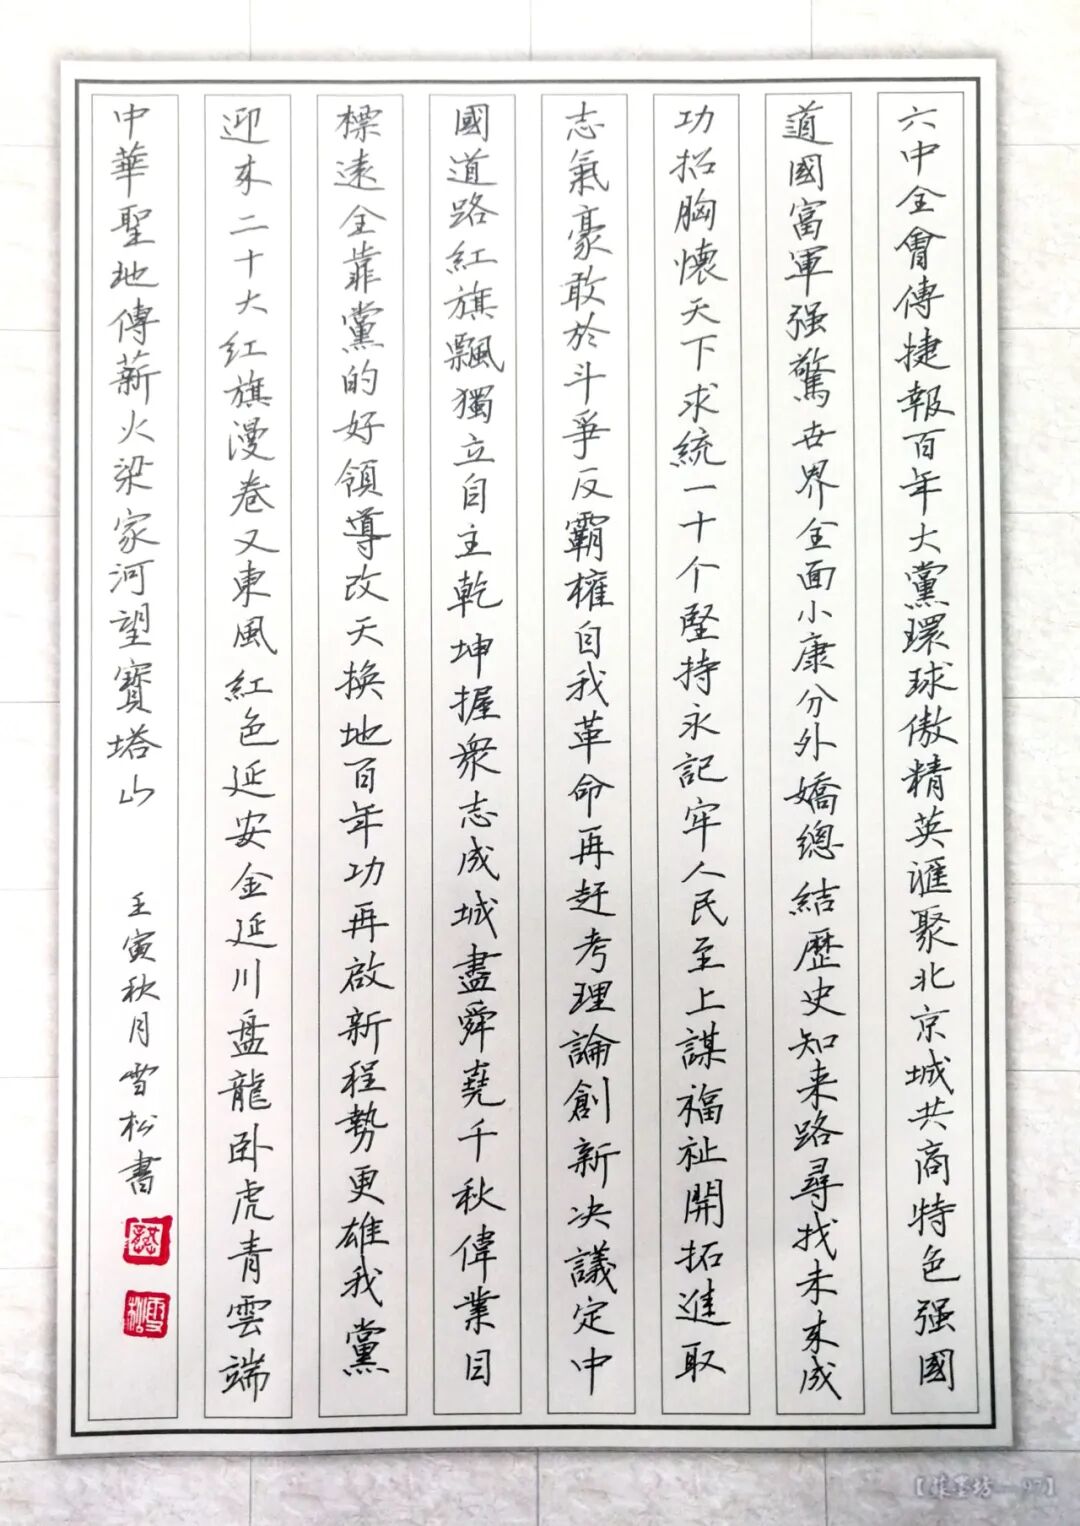 六中全會傳捷報百年大黨環球傲精英匯聚北京城共商特色强國
道國富軍强驚世界全面小康分外嬌總結歷史知来路尋找未来成
功招胸懷天下求統一十个堅持永記牢人民至上謀福祉開拓進取
志氣豪敢於斗爭反霸權自我革命再赶考理論創新决議定中
國道路紅旗飄獨立自主乾坤握衆志成城盡舜堯千秋偉業目
標遠全靠黨的好領導改天換地百年功再啟新程勢更雄我黨
迎来二十大紅旗漫卷又東風紅色延安金延川盘龍卧虎青雲端
中華聖地傳薪火梁家河望寶塔山
壬寅秋月雪松書
雪松